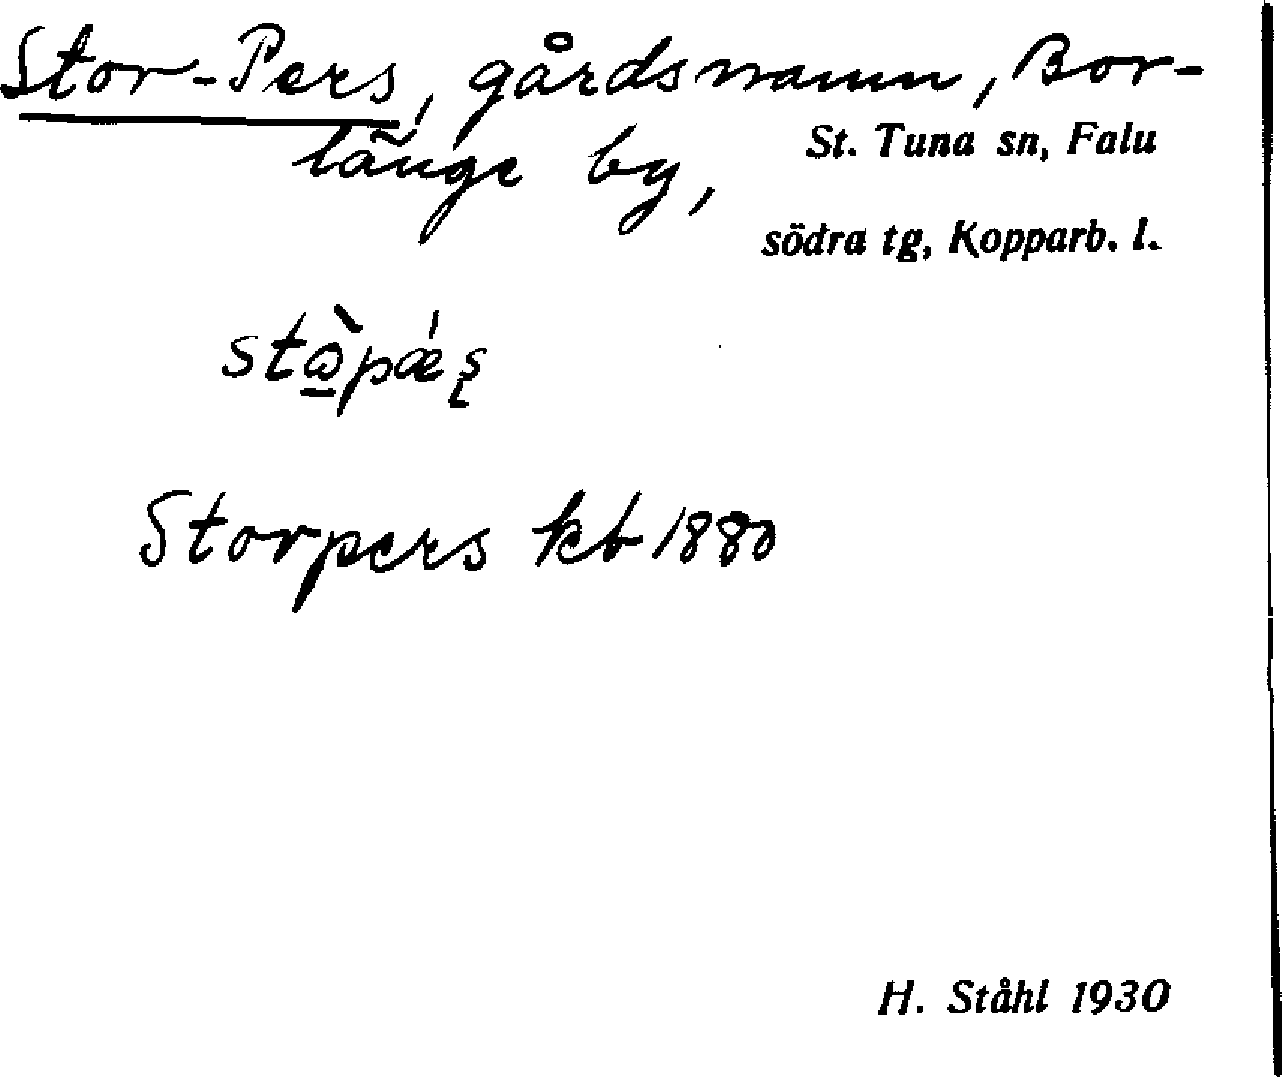 Stor-Pers, gårdsnamn, Bor-
länge by,
St. Tuna sn, Falu
södra tg, Kopparb. l.
Storpers kb 1880
H. Ståhl 1930